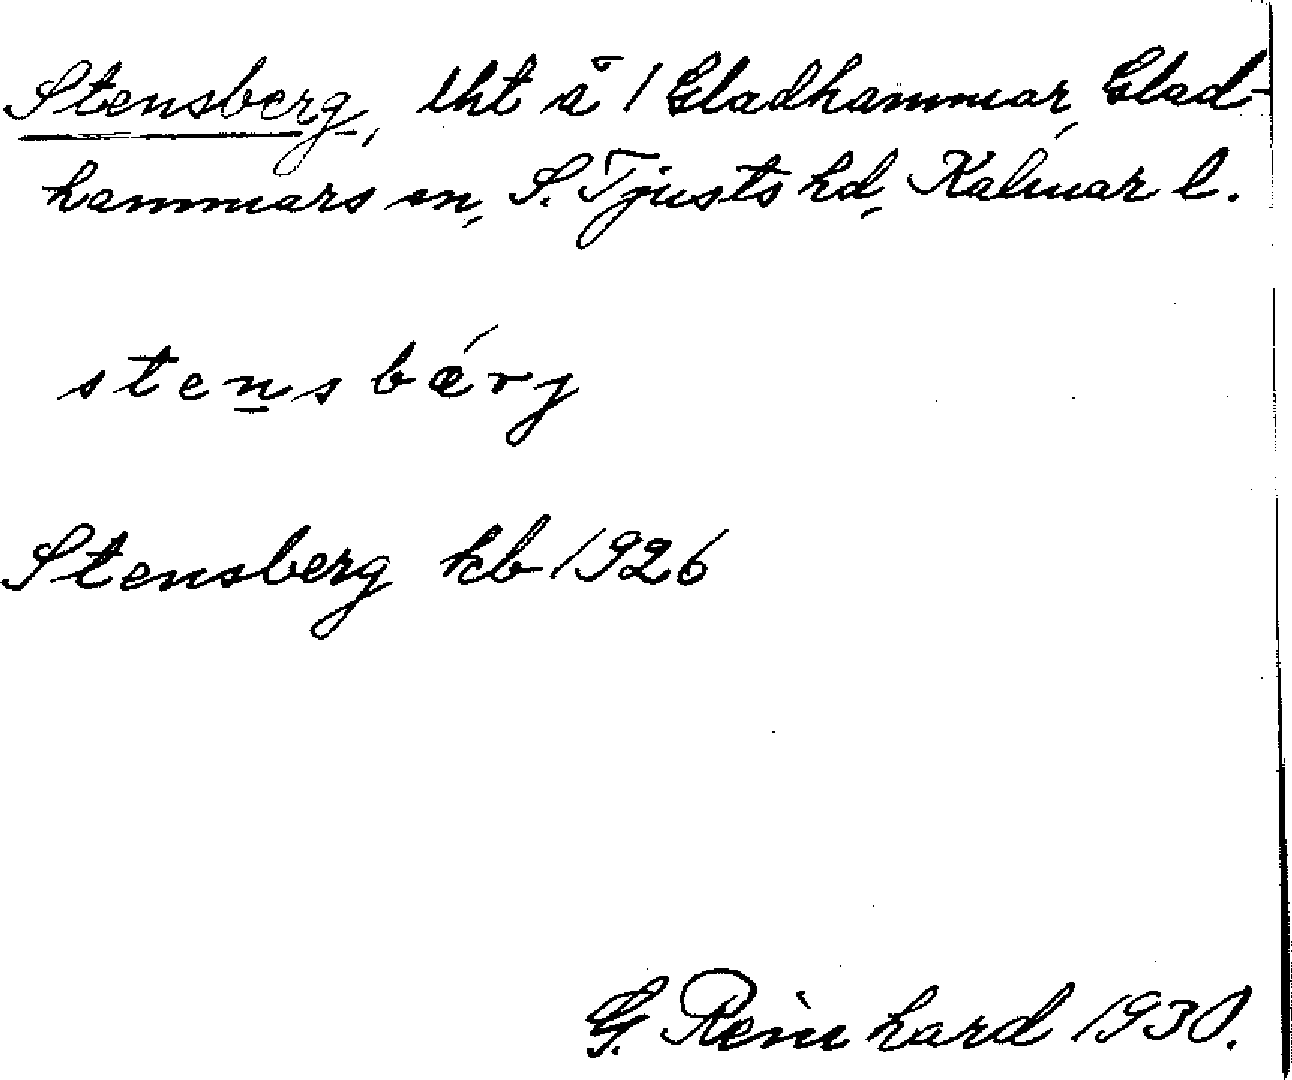 Stensberg, lht å 1 Gladhammar, Glad-
hammars sn, S. Tjusts hd, Kalmar l.
stensbǽrj
Stensberg kb 1926
G. Reinhard 1930.